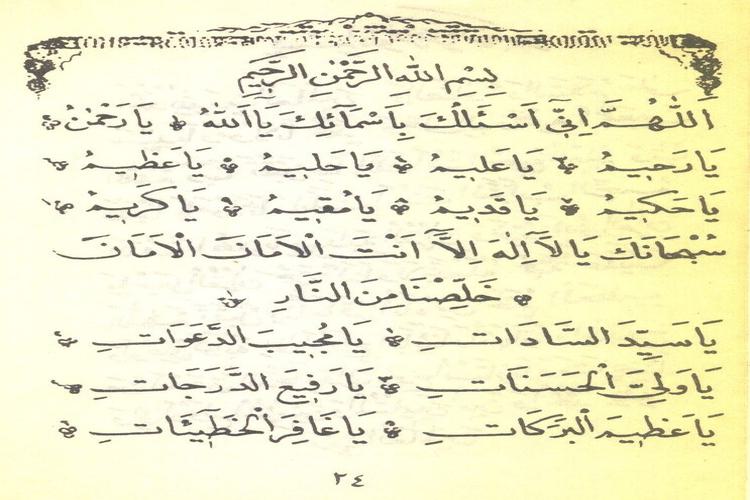 بِسْمِ اللّٰهِ الرَّحْمٰنِ الرَّحِيمِ
اَللّٰهُمَّ اِنِّى اَسْئَلُكَ بِاَسْمَائِكَ يَا اَللّٰهُ يَا رَحْمٰنُ
يَا رَحِيمُ يَا عَلِيمُ يَا حَلِيمُ يَا عَظِيمُ
يَا حَكِيمُ يَا قَدِيمُ يَا مُقِيمُ يَا كَرِيمُ
سُبْحَانَكَ يَا لَا اِلٰهَ اِلَّا اَنْتَ الْاَمَانَ الْاَمَانَ
خَلِّصْنَا مِنَ النَّارِ
يَا سَيِّدَ السَّادَاتِ يَا مُجِيبَ الدَّعَوَاتِ
يَا وَلِىَّ الْحَسَنَاتِ يَا رَفِيعَ الدَّرَجَاتِ
يَا عَظِيمَ الْبَرَكَاتِ يَا غَافِرَ الْخَطِيئَاتِ
٢٤